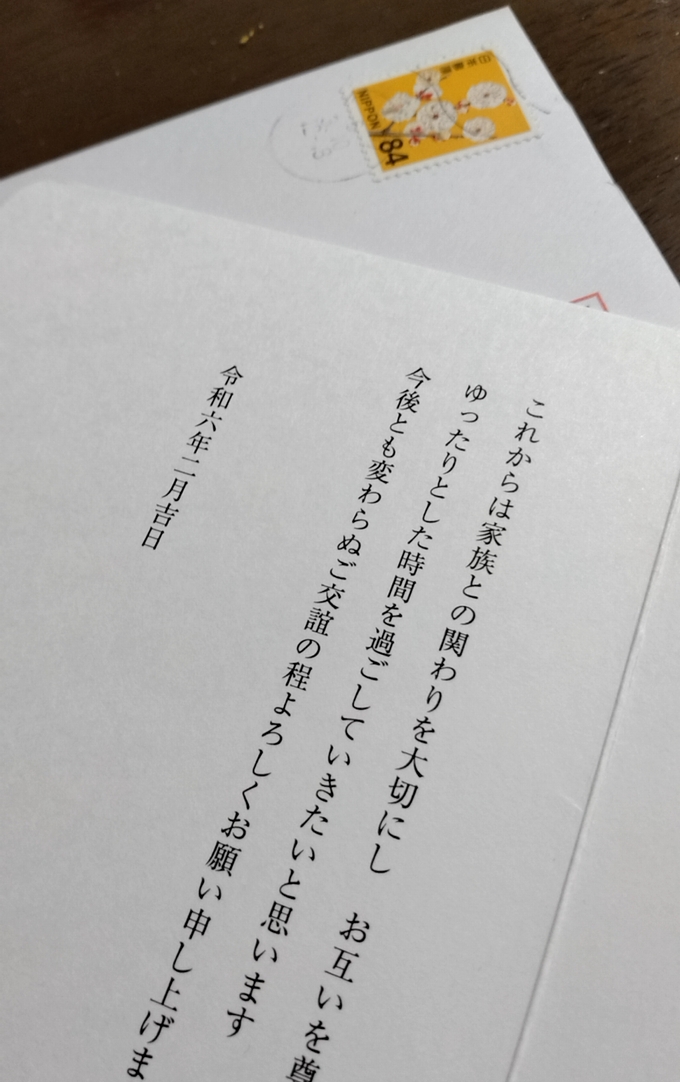 日本郵便
NIPPON
84
これからは家族との関わりを大切にし　お互いを尊
ゆったりとした時間を過ごしていきたいと思います
今後とも変わらぬご交誼の程よろしくお願い申し上げま
令和六年二月吉日